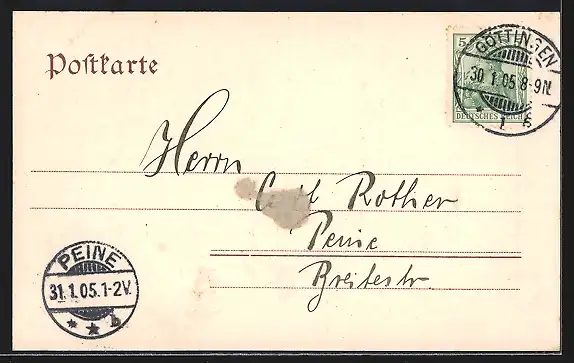 Postkarte
5
DEUTSCHES REICH
GÖTTINGEN
30.1.05.8-9N.
* 1 *
Herrn
Carl Rother
Peine
Breitestr
PEINE
31.1.05.1-2V.
* * b